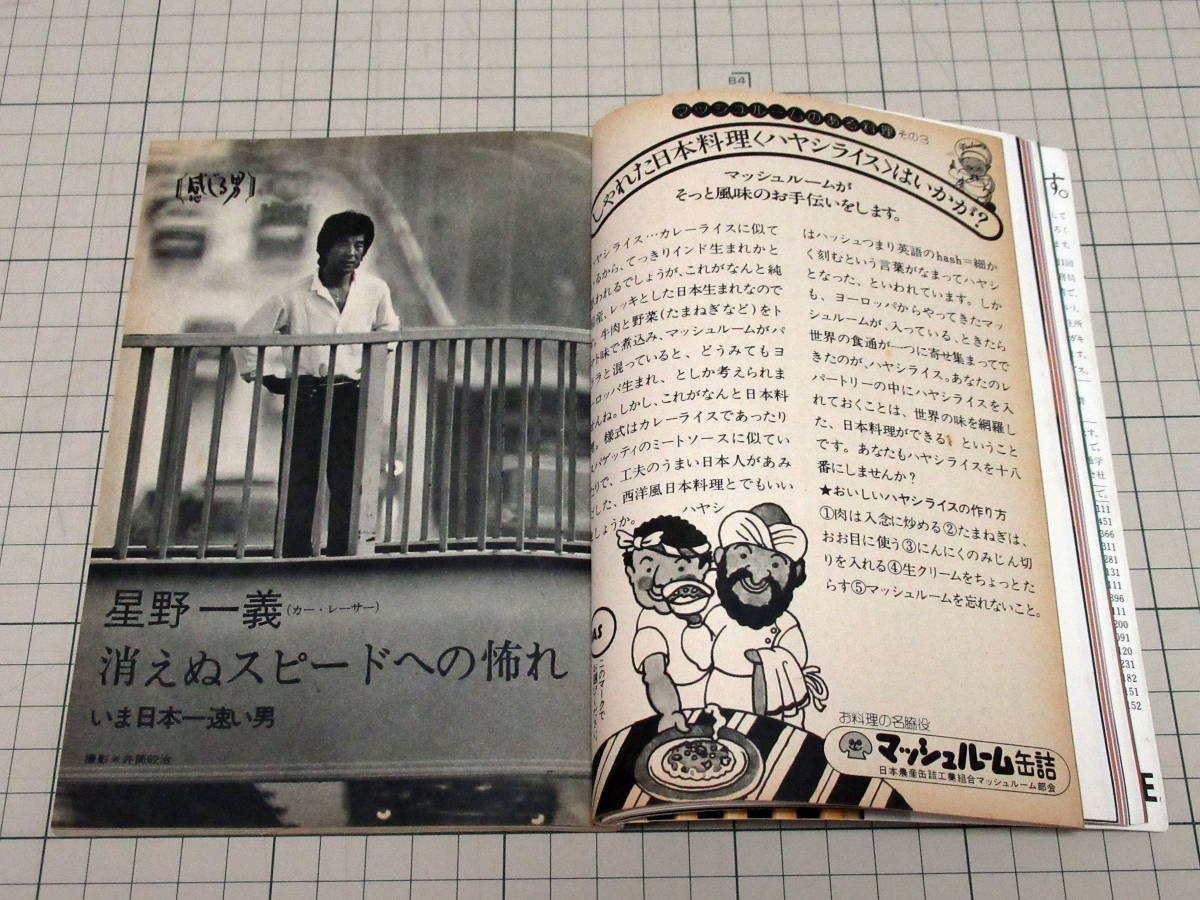 B4
感じる男
星野一義(カー・レーサー)
消えぬスピードへの怖れ
いま日本一速い男
マッシュルームのある料理 その3
しゃれた日本料理〈ハヤシライス〉はいかが?
マッシュルームが
そっと風味のお手伝いをします。
ヤシライス…カレーライスに似て
るから、てっきりインド生まれかと
われるでしょうが、これがなんと純
産、レッキとした日本生まれなので
牛肉と野菜(たまねぎなど)をト
ト味で煮込み、マッシュルームがパ
ラと混っていると、どうみてもヨ
ロッパ生まれ、としか考えられま
んね。しかし、これがなんと日本料
様式はカレーライスであったり
パゲッティのミートソースに似てい
りで、工夫のうまい日本人があみ
した、西洋風日本料理とでもいい
しょうか。 ハヤシ
はハッシュつまり英語のhash=細か
く刻むという言葉がなまってハヤシ
となった、といわれています。しか
も、ヨーロッパからやってきたマッ
シュルームが、入っている、ときたら
世界の食通が一つに寄せ集まってで
きたのが、ハヤシライス。あなたのレ
パートリーの中にハヤシライスを入
れておくことは、世界の味を網羅し
た、日本料理ができる、ということ
です。あなたもハヤシライスを十八
番にしませんか?
★おいしいハヤシライスの作り方
①肉は入念に炒める②たまねぎは、
おお目に使う③にんにくのみじん切
りを入れる④生クリームをちょっとた
らす⑤マッシュルームを忘れないこと。
AS
このマークで
お料理の名脇役
マッシュルーム缶詰
日本農産缶詰工業組合マッシュルーム部会
す。
111
451
366
311
281
131
111
396
200
091
120
231
182
151
152
E.